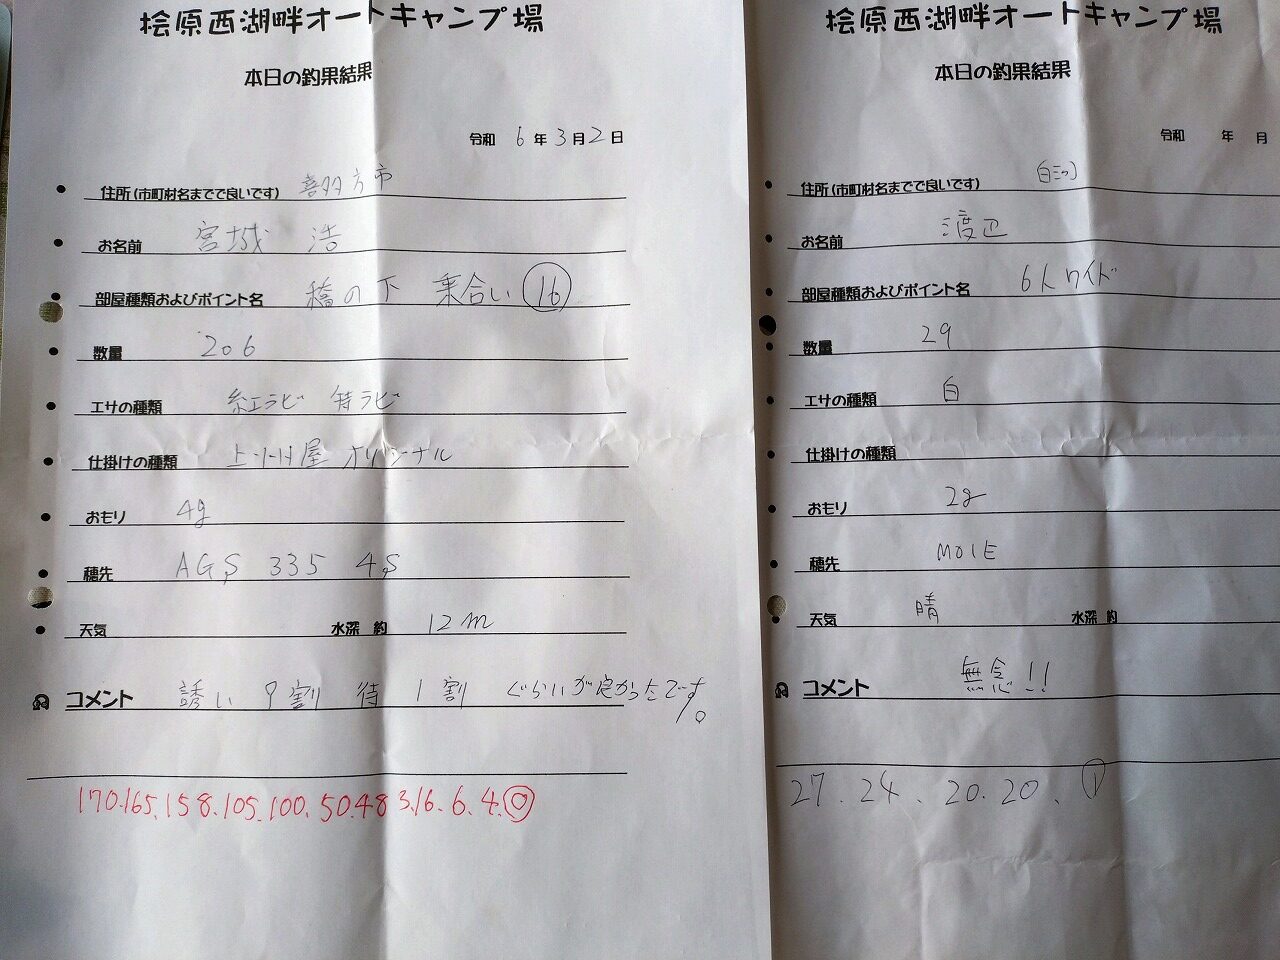 桧原西湖畔オートキャンプ場
本日の釣果結果
令和 6 年 3 月 2 日
住所(市町村名までで良いです) 喜多方市
お名前 宮城 浩
部屋種類およびポイント名 橋の下 乗合い 16
数量 206
エサの種類 紅ラビ 特ラビ
仕掛けの種類 オリジナル
おもり 4g
穂先 AGS 335 4S
天気 水深 約 12m
コメント 誘い 9割 待 1割 ぐらいが良かったです。
170.165.158.105.100.50.48 3.16.6.4.◎
桧原西湖畔オートキャンプ場
本日の釣果結果
令和 年 月
住所(市町村名までで良いです)
お名前 渡辺
部屋種類およびポイント名 6人ワイド
数量 29
エサの種類 白
仕掛けの種類
おもり 2g
穂先 MOLE
天気 晴 水深 約
コメント 無念!!
27.24.20.20.①